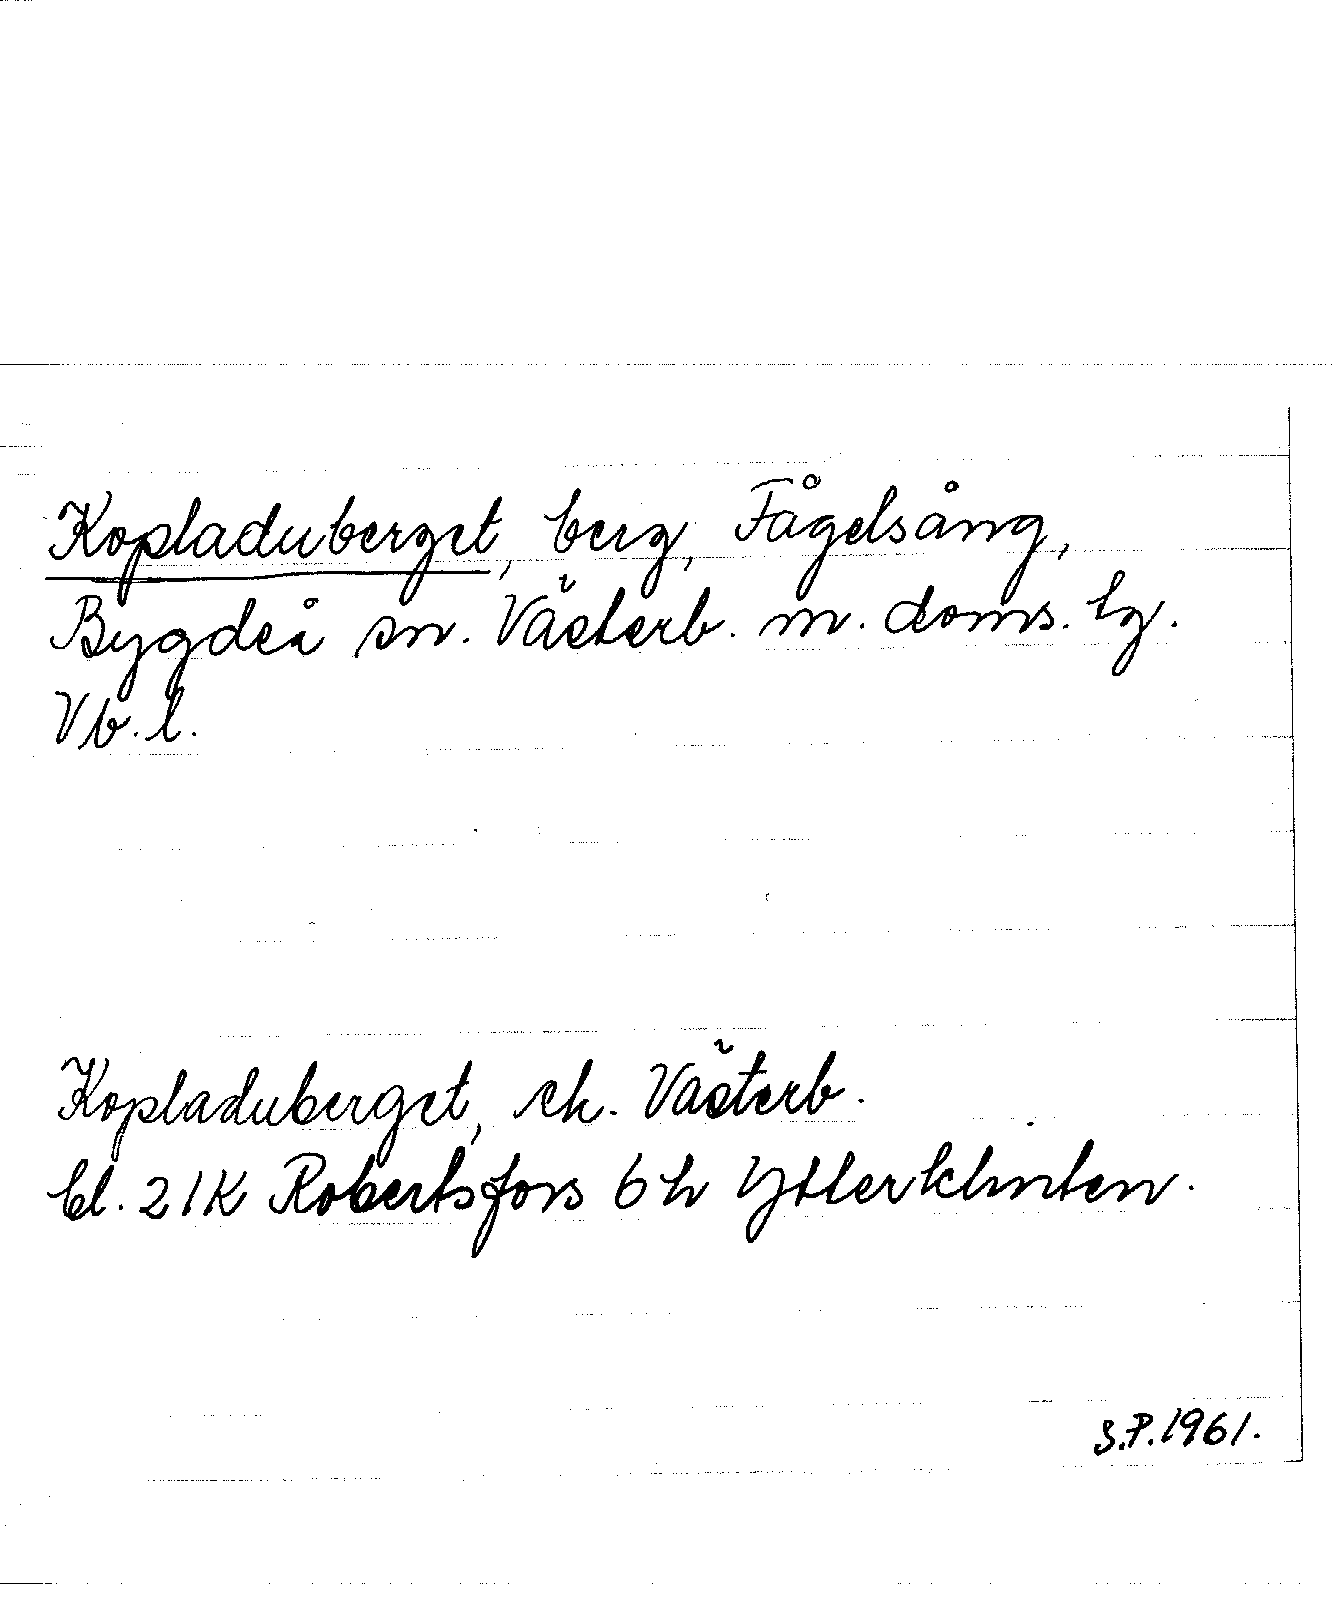 Kopladuberget, berg, Fågelsång,
Bygdeå sn. Västerb. m. doms. lg.
Vb. l.
Kopladuberget, ek. Västerb.
bl. 21K Robertsfors 6 h Ytterklinten.
S.P. 1961.